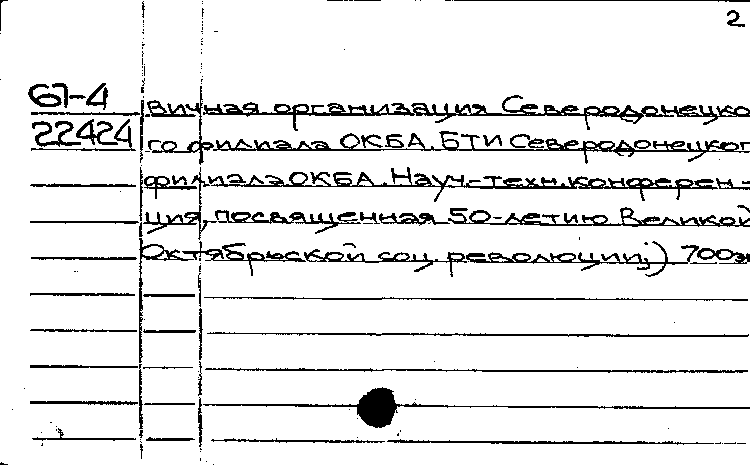 2
67-4 вичная организация Северодонецко
22424 го филиала ОКБА. БТИ Северодонецког
филиала ОКБА. Науч.-техн. конферен-
ция, посвященная 50-летию Великой
Октябрьской соц. революции;) 700э